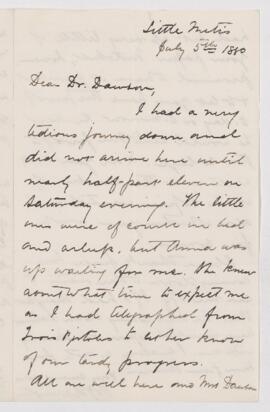 Little Metis
July 5th 1880
Dear Dr. Dawson,
I had a very
tedious journey down and
did not arrive here until
nearly half-past eleven on
Saturday evening. The little
ones were of course in bed
and asleep, but Anna was
up waiting for me. She knew
about what time to expect me
as I had telegraphed from
Trois Pistoles to let her know
of our tardy progress.
All are well here and Mrs Dawson